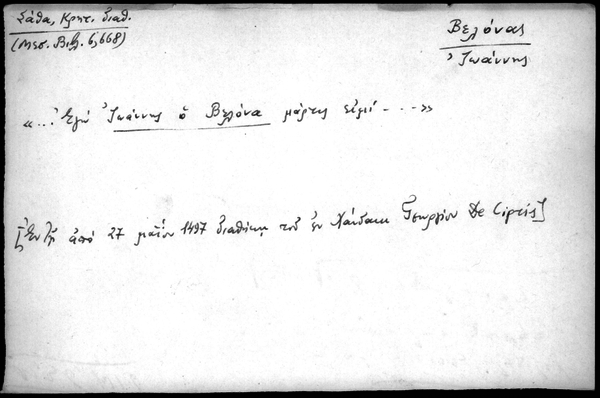 Σάθα, Κρητ. διαθ.
(Μεσ. Βιβλ. 6, 668)
Βελόνας
Ἰωάννης
«... Ἐγὼ Ἰωάννης ὁ Βελόνα μάρτυς εἰμί - ... »
[Ἐν τῇ ἀπὸ 27 μαΐου 1497 διαθήκῃ τοῦ ἐν Χάνδακι Γεωργίου De Cipris]